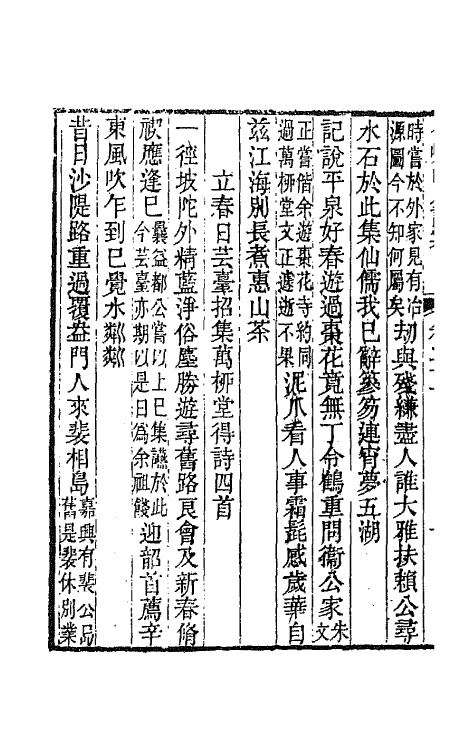 時嘗於外家見有冶
源圖今不知何屬矣
劫與殘縑盡人誰大雅扶賴公尋
水石於此集仙儒我已辭簪笏連宵夢五湖
記說平泉好春遊過棗花竟無丁令鶴重問衞公家
朱文
正嘗偕余遊棗花寺約同
過萬柳堂文正遽逝不果
泥爪看人事霜髭感歲華自
兹江海別長煮惠山茶
立春日芸臺招集萬柳堂得詩四首
一徑坡陀外精藍淨俗塵勝遊尋舊路良會及新春脩
禊應逢巳
曩益都公嘗以上巳集讌於此
今芸臺亦期以是日爲余祖餞
迎韶首薦辛
東風吹乍到已覺水鄰鄰
昔日沙隄路重過覆盎門人來裴相島
嘉興有裴公島
舊是裴休別業